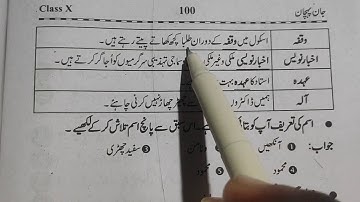 Class X 100 جان پہچان
وقفہ اسکول میں وقفہ کے دوران طلبا کچھ کھاتے پیتے رہتے ہیں۔
اخبار نویس اخبار نویس ملکی و غیر ملکی سماجی تہذیبی سرگرمیوں کو اُجاگر کرتے ہیں۔
عہدہ استاد کا عہدہ بہت
آلہ ہمیں ڈاکٹروں چھاڑ نہیں کرنی چاہئے۔
● اسم کی تعریف آپ کو بتائی اس سبق سے پانچ اسم تلاش کر کے لکھیے۔
جواب: 1 آنکھیں 3 سفید چھڑی
4 محمود 5 محمود